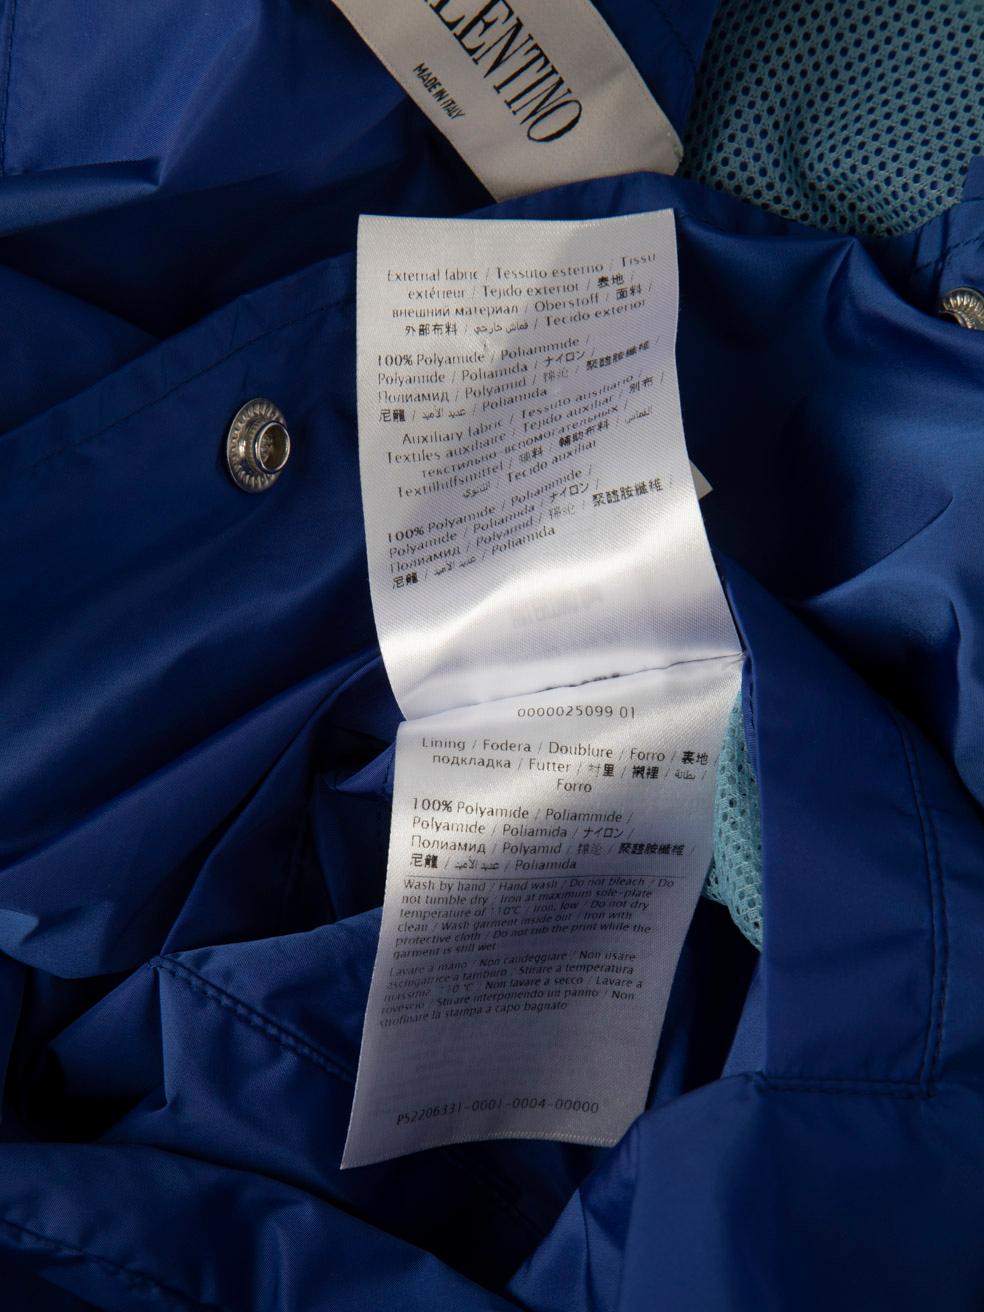 LENTINO
MADE IN ITALY
External fabric / Tessuto esterno / Tissu
extérieur / Tejido exterior / 表地 /
внешний материал / Oberstoff / 面料 /
外部布料 / قماش خارجي / Tecido exterior
100% Polyamide / Poliammide /
Polyamide / Poliamida / ナイロン /
Полиамид / Polyamid / 锦沦 / 聚醯胺纖維 /
尼龍 / / Poliamida
Auxiliary fabric / Tessuto ausiliario /
Textiles auxiliaire / Tejido auxiliar / 別布 /
текстильно-вспомогательных /
Textilhilfsmittel / 辅料 / 輔助布料 /
/ Tecido auxiliar
100% Polyamide / Poliammide /
Polyamide / Poliamida / ナイロン /
Полиамид / Polyamid / 锦沦 / 聚醯胺纖維 /
尼龍 / / Poliamida
0000025099 01
Lining / Fodera / Doublure / Forro / 裏地
подкладка / Futter / 衬里 / 襯裡 / بطانة /
Forro
100% Polyamide / Poliammide /
Polyamide / Poliamida / ナイロン /
Полиамид / Polyamid / 锦沦 / 聚醯胺纖維 /
尼龍 / / Poliamida
Wash by hand / Hand wash / Do not bleach / Do
not tumble dry / Iron at maximum sole-plate
temperature of 110°C / Iron, low / Do not dry
clean / Wash garment inside out / Iron with
protective cloth / Do not rub the print while the
garment is still wet
Lavare a mano / Non candeggiare / Non usare
asciugatrice a tamburo / Stirare a temperatura
massima 110°C / Non lavare a secco / Lavare a
rovescio / Stirare interponendo un panno / Non
strofinare la stampa a capo bagnato
PS2206331-0001-0004-00000